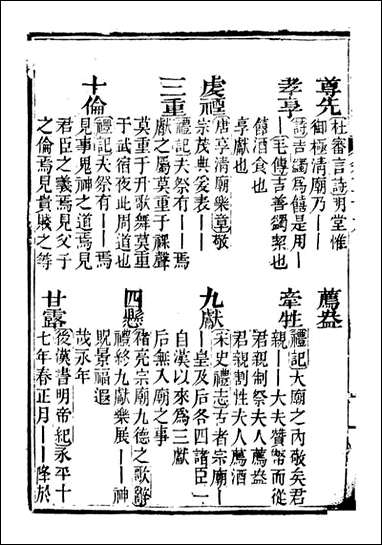 尊先
杜審言詩明堂惟
御極清廟乃——
孝享
詩吉蠲爲饎是用—
—毛傳吉善蠲絜也
饎酒食也
享獻也
虔禋
唐享清廟樂章敬
宗茂典爰表——
三重
禮記夫祭有——焉
獻之屬莫重于祼聲
莫重于升歌舞莫重
于武宿夜此周道也
十倫
禮記夫祭有——焉
見事鬼神之道焉見
君臣之義焉見父子
之倫焉見貴賤之等
薦盎
牽牲
禮記大廟之内敬矣君
親——大夫贊幣而從
君親制祭夫人薦盎
君親割牲夫人薦酒
九獻
宋史禮志古者宗廟—
—皇及后各四諸臣一
自漢以來爲三獻
后無入廟之事
四懸
褚亮宗廟九德之歌辭
禮終九獻樂展——神
貺景福遐
哉永年
甘露
後漢書明帝紀永平十
七年春正月——降於